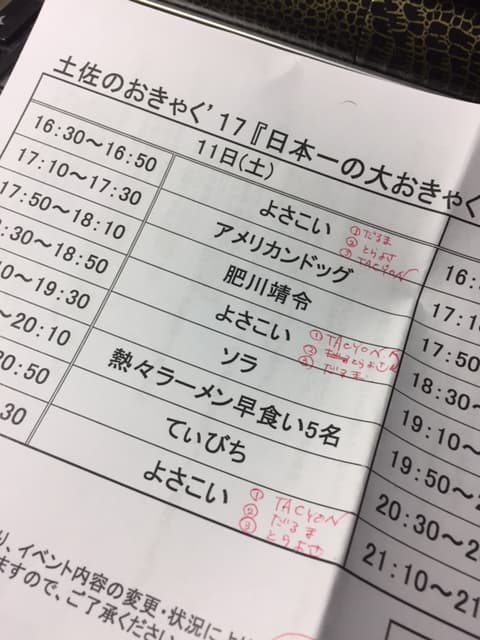 土佐のおきゃく'17『日本一の大おきゃく
11日(土)
16:30～16:50 よさこい ①だるま
②とらよさ
③TACYON
16:
17:10～17:30 アメリカンドッグ 17:10
17:50～18:10 肥川靖令 17:50
8:30～18:50 よさこい ①TACYON
②とらよさ
③だるま
18:30～
10～19:30 ソラ 19:10～
～20:10 熱々ラーメン早食い5名 19:50～2
20:50 てぃびち 20:30～2
.30 よさこい ①TACYON
②だるま
③とらよさ
21:10～21
り、イベント内容の変更・状況により
ますので、ご了承ください